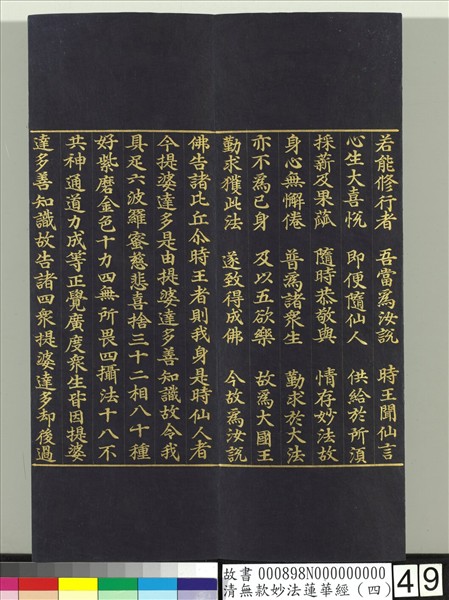 若能修行者　吾當為汝說　時王聞仙言
心生大喜悅　即便隨仙人　供給於所須
採薪及果蓏　隨時恭敬與　情存妙法故
身心無懈倦　普為諸眾生　勤求於大法
亦不為己身　及以五欲樂　故為大國王
勤求獲此法　遂致得成佛　今故為汝說
佛告諸比丘尒時王者則我身是時仙人者
今提婆達多是由提婆達多善知識故令我
具足六波羅蜜慈悲喜捨三十二相八十種
好紫磨金色十力四無所畏四攝法十八不
共神通道力成等正覺廣度眾生皆因提婆
達多善知識故告諸四眾提婆達多却後過
故書 000898N000000000
清無款妙法蓮華經（四）
49